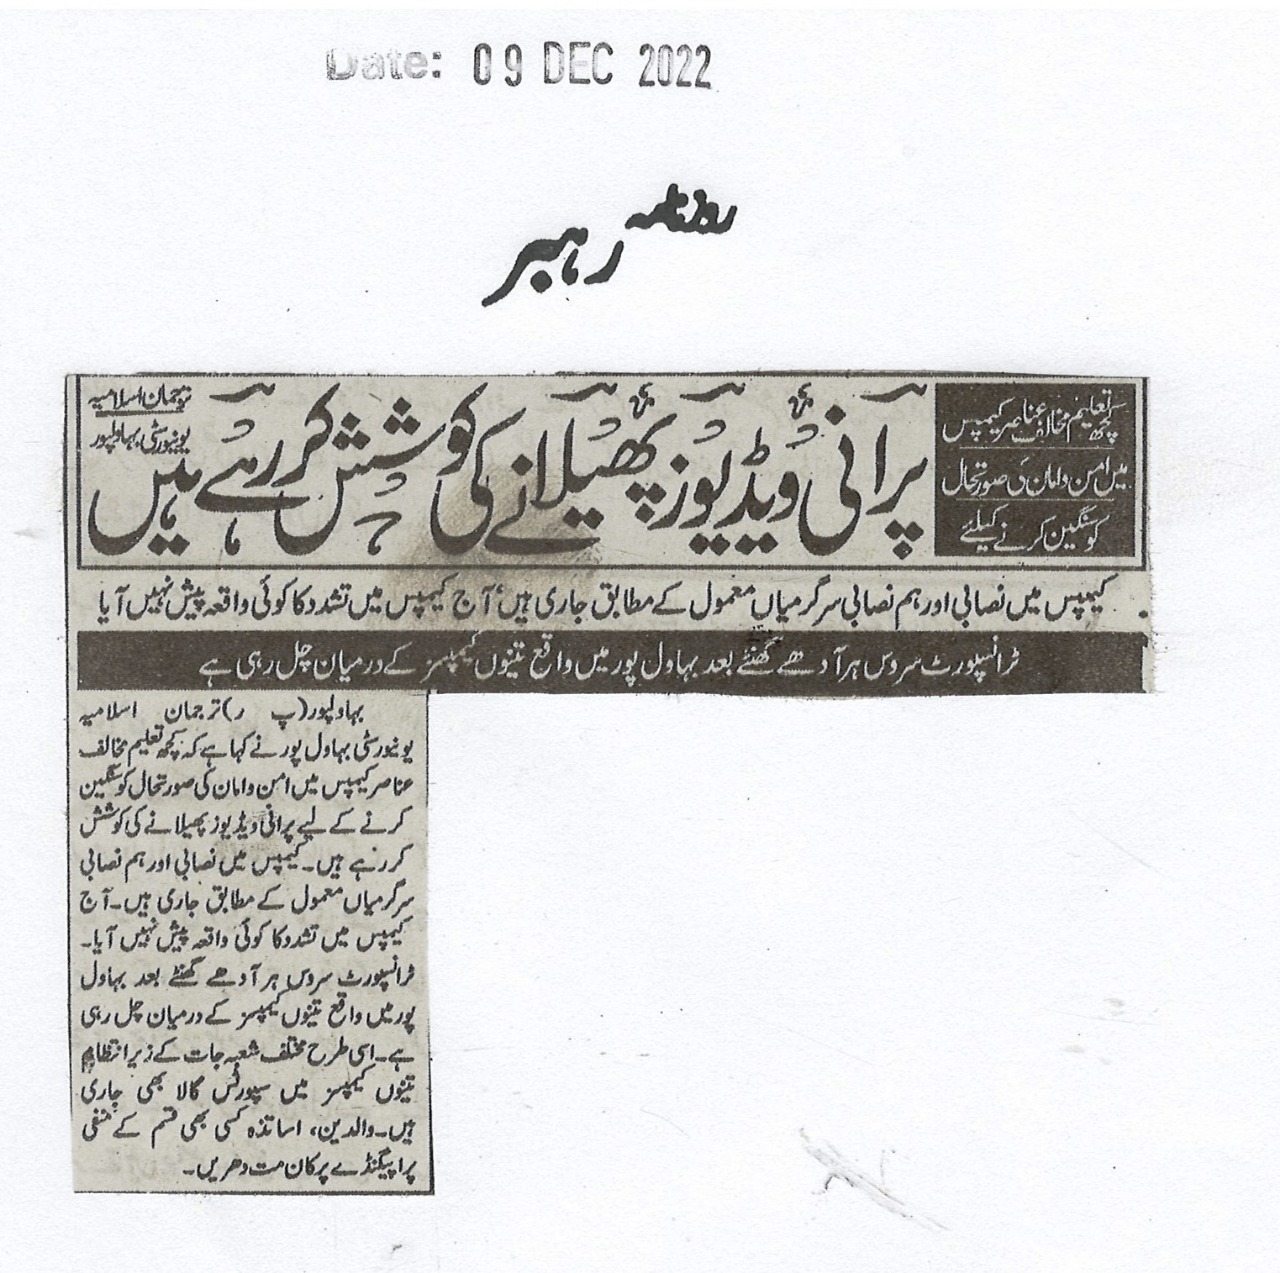 Date: 09 DEC 2022
روزنامہ رہبر
کچھ تعلیم مخالف عناصر کیمپس
میں امن و امان کی صورتحال
کو سنگین کرنے کیلئے
پرانی ویڈیوز پھیلانے کی کوشش کر رہے ہیں
ترجمان اسلامیہ
یونیورسٹی، بہاولپور
کیمپس میں نصابی اور ہم نصابی سرگرمیاں معمول کے مطابق جاری ہیں، آج کیمپس میں تشدد کا کوئی واقعہ پیش نہیں آیا
ٹرانسپورٹ سروس ہر آدھے گھنٹے بعد بہاول پور میں واقع تینوں کیمپسز کے درمیان چل رہی ہے
بہاولپور(پ ر)ترجمان اسلامیہ
یونیورسٹی بہاول پور نے کہا ہے کہ کچھ تعلیم مخالف
عناصر کیمپس میں امن و امان کی صورتحال کو سنگین
کرنے کے لیے پرانی ویڈیوز پھیلانے کی کوشش
کر رہے ہیں۔ کیمپس میں نصابی اور ہم نصابی
سرگرمیاں معمول کے مطابق جاری ہیں۔ آج
کیمپس میں تشدد کا کوئی واقعہ پیش نہیں آیا۔
ٹرانسپورٹ سروس ہر آدھے گھنٹے بعد بہاول
پور میں واقع تینوں کیمپسز کے درمیان چل رہی
ہے۔ اسی طرح مختلف شعبہ جات کے زیر انتظام
تینوں کیمپسز میں سپورٹس گالا بھی جاری
ہیں۔ والدین، اساتذہ کسی بھی قسم کے منفی
پراپیگنڈے پر کان مت دھریں۔